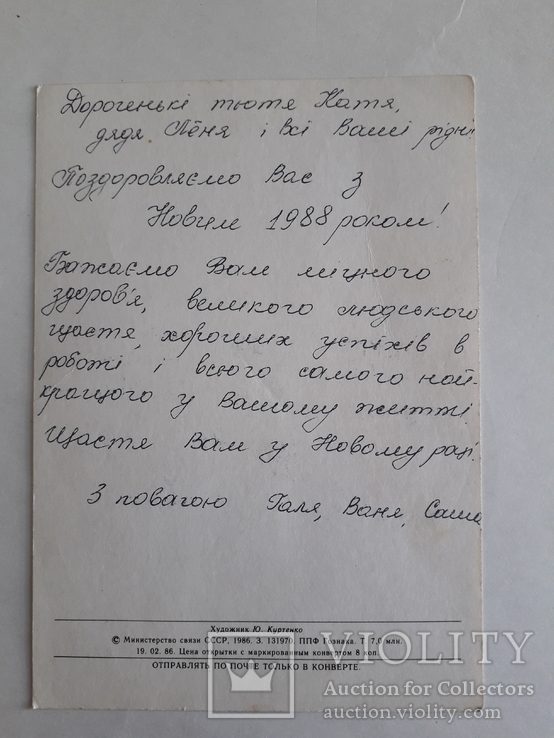 Дорогенькі тютя Катя,
дядя Лёня і всі Ваші рідні!
Поздоровляємо Вас з
Новим 1988 роком!
Бажаємо Вам міцного
здоров'я, великого людського
щастя, хороших успіхів в
роботі і всього самого най-
кращого у Вашому житті.
Щастя Вам у Новому році!
З повагою Галя, Ваня, Саша
Художник Ю. Куртенко
© Министерство связи СССР, 1986. З. 131970. ППФ Гознака. Т. 7,0 млн.
19. 02. 86. Цена открытки с маркированным конвертом 8 коп.
ОТПРАВЛЯТЬ ПО ПОЧТЕ ТОЛЬКО В КОНВЕРТЕ.
VIOLITY
Auction for Collectors
auction.violity.com